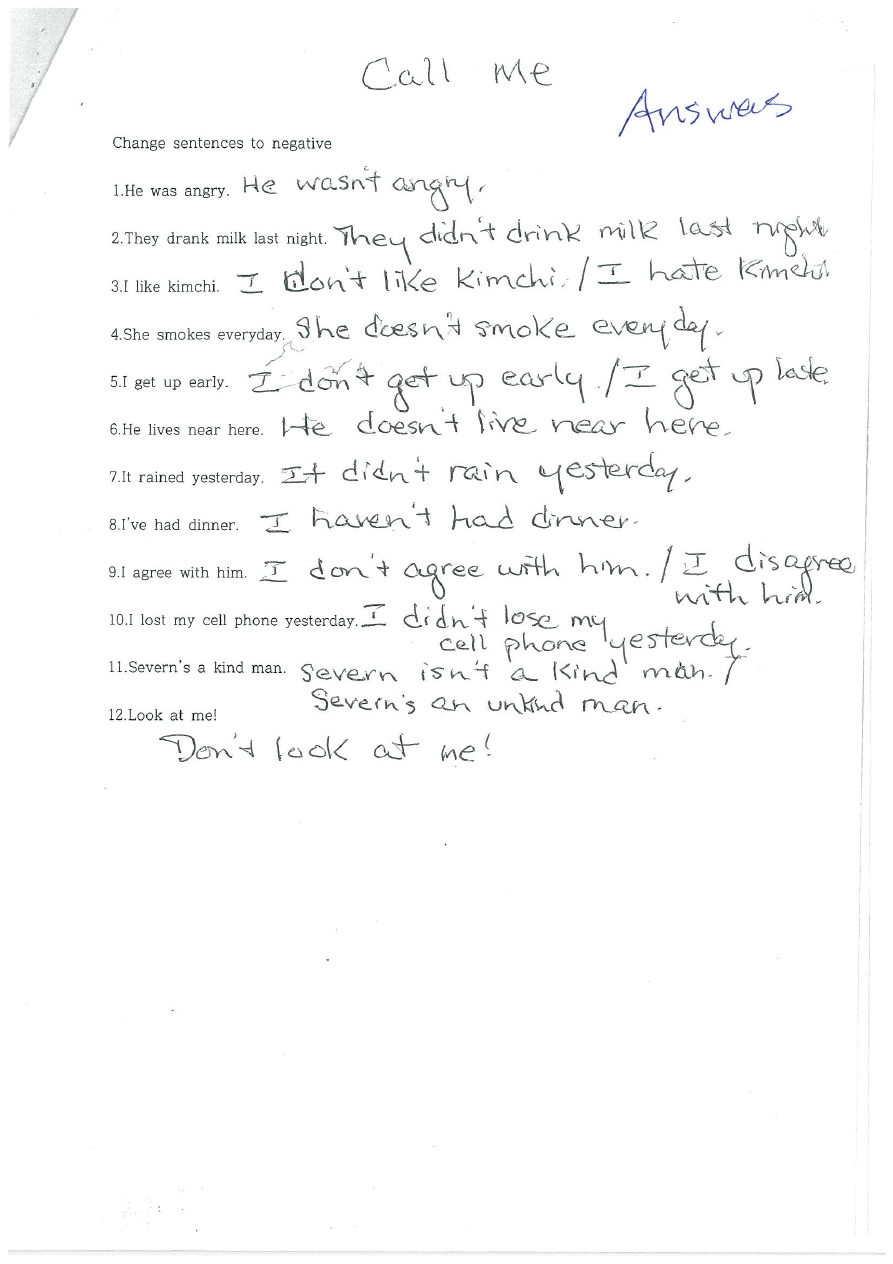 Call Me
Answers
Change sentences to negative
1.He was angry. He wasn't angry.
2.They drank milk last night. They didn't drink milk last night
3.I like kimchi. I don't like kimchi. / I hate kimchi.
4.She smokes everyday. She doesn't smoke everyday.
5.I get up early. I don't get up early. / I get up late
6.He lives near here. He doesn't live near here.
7.It rained yesterday. It didn't rain yesterday.
8.I've had dinner. I haven't had dinner.
9.I agree with him. I don't agree with him. / I disagree
with him.
10.I lost my cell phone yesterday. I didn't lose my
cell phone yesterday.
11.Severn's a kind man. Severn isn't a kind man. /
Severn's an unkind man.
12.Look at me!
Don't look at me!